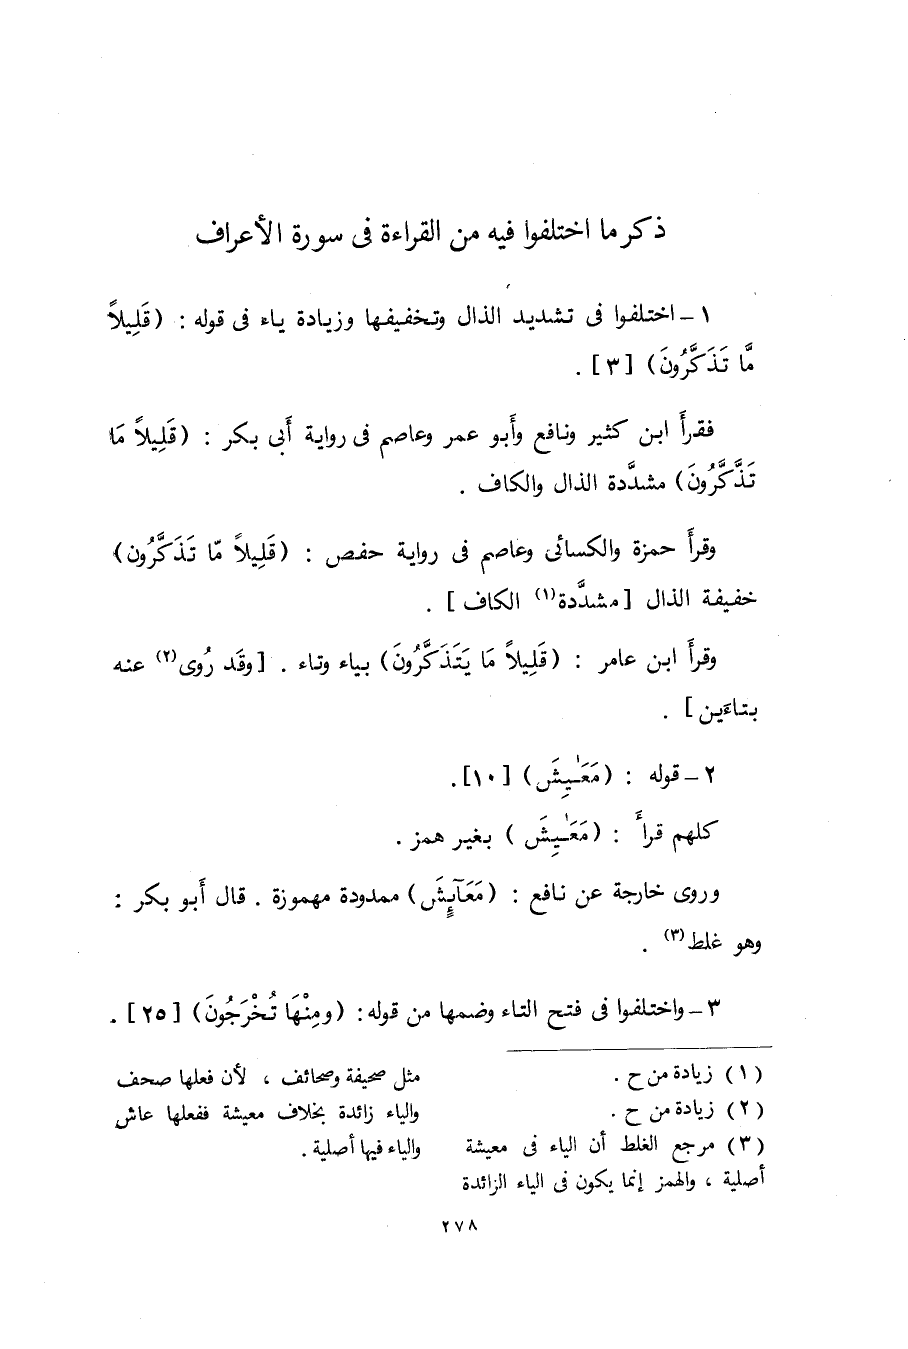 ذكر ما اختلفوا فيه من القراءة فى سورة الأعراف
١ ـ اختلفوا فى تشديد الذال وتخفيفها وزيادة ياء فى قوله : ( قَلِيلاً
مَّا تَذَكَّرُونَ ) [ ٣ ] .
فقرأَ ابن كثير ونافع وأَبو عمر وعاصم فى رواية أَبى بكر : ( قَلِيلاً مَا
تَذَّكَّرُونَ ) مشدَّدة الذال والكاف .
وقرأَ حمزة والكسائى وعاصم فى رواية حفص : ( قَلِيلاً مّا تَذَكَّرُون )
خفيفة الذال [ مشدَّدة (١) الكاف ] .
وقرأَ ابن عامر : ( قَلِيلاً مَا يَتَذَكَّرُونَ ) بياء وتاء . [ وقَد رُوى (٢) عنه
بتاءَين ] .
٢ ـ قوله : ( مَعَـٰيِشَ ) [ ١٠ ] .
كلهم قرأَ : ( مَعَـٰيِشَ ) بغير همز .
وروى خارجة عن نافع : ( مَعَآئِشَ ) ممدودة مهموزة . قال أَبو بكر :
وهو غلط (٣) .
٣ ـ واختلفوا فى فتح التاء وضمها من قوله : ( ومِنْهَا تُخْرَجُونَ ) [ ٢٥ ] .
( ١ ) زيادة من ح .
( ٢ ) زيادة من ح .
( ٣ ) مرجع الغلط أن الياء فى معيشة
أصلية ، والهمز إنما يكون فى الياء الزائدة
مثل صحيفة وصحائف ، لأن فعلها صحف
والياء زائدة بخلاف معيشة ففعلها عاش
والياء فيها أصلية .
٢٧٨